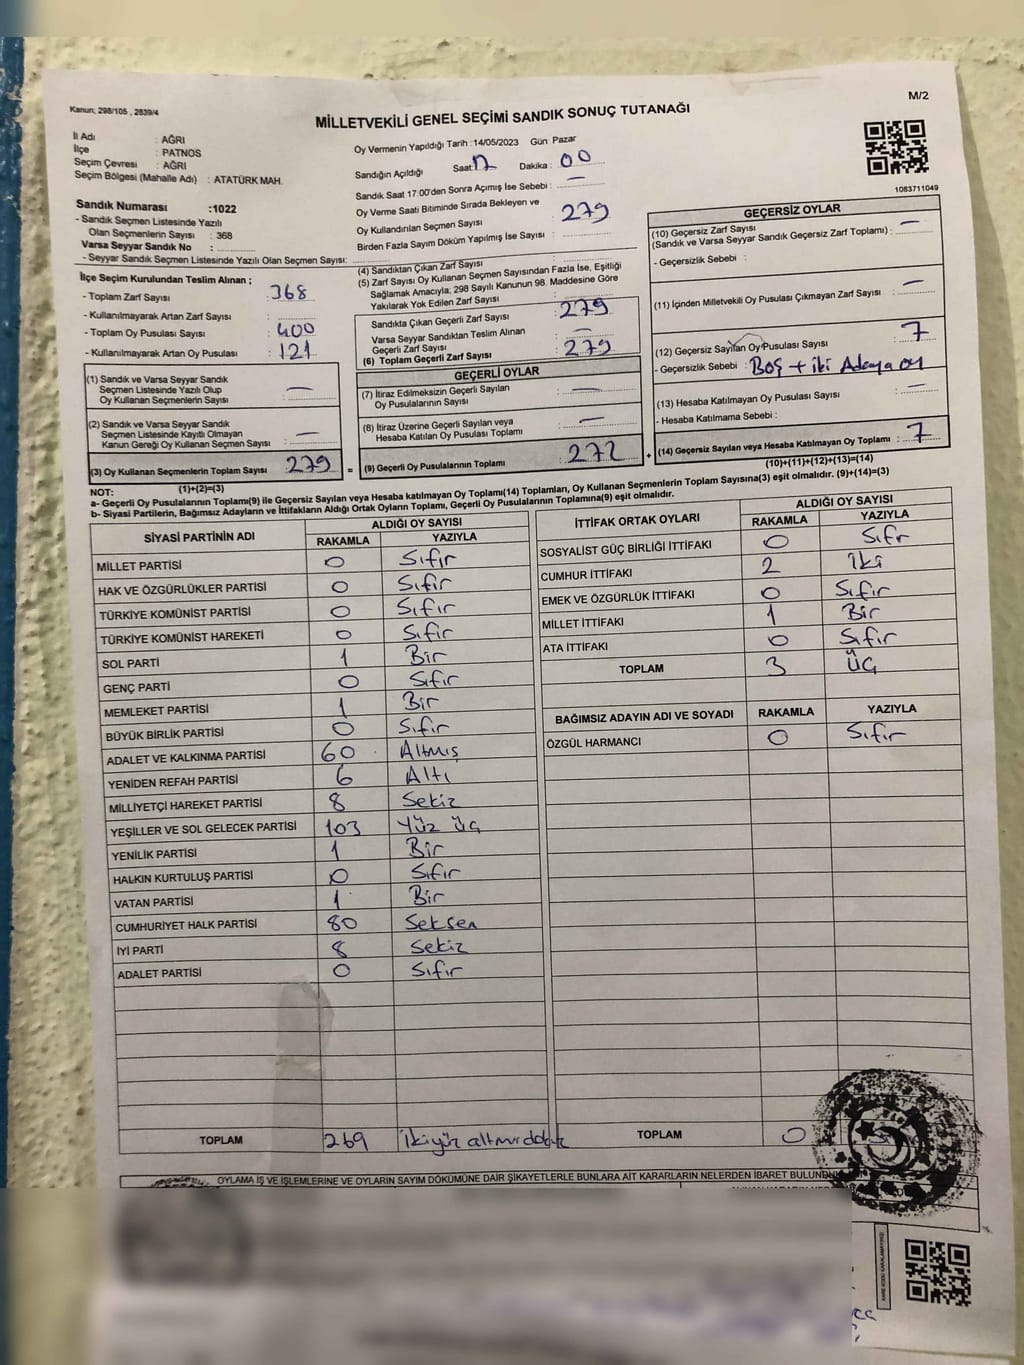 Kanun; 298/105 , 2839/4
M/2
MİLLETVEKİLİ GENEL SEÇİMİ SANDIK SONUÇ TUTANAĞI
İl Adı : AĞRI
İlçe : PATNOS
Seçim Çevresi : AĞRI
Seçim Bölgesi (Mahalle Adı) : ATATÜRK MAH.
Sandık Numarası :1022
- Sandık Seçmen Listesinde Yazılı
Olan Seçmenlerin Sayısı : 368
Varsa Seyyar Sandık No :
- Seyyar Sandık Seçmen Listesinde Yazılı Olan Seçmen Sayısı:
Oy Vermenin Yapıldığı Tarih :14/05/2023 Gün Pazar
Sandığın Açıldığı Saat: 17 Dakika : 00
Sandık Saat 17:00'den Sonra Açımış İse Sebebi : —
Oy Verme Saati Bitiminde Sırada Bekleyen ve
Oy Kullandırılan Seçmen Sayısı : 279
Birden Fazla Sayım Döküm Yapılmış İse Sayısı :
1083711049
İlçe Seçim Kurulundan Teslim Alınan ;
- Toplam Zarf Sayısı : 368
- Kullanılmayarak Artan Zarf Sayısı :
- Toplam Oy Pusulası Sayısı : 400
- Kullanılmayarak Artan Oy Pusulası : 121
(1) Sandık ve Varsa Seyyar Sandık
Seçmen Listesinde Yazılı Olup
Oy Kullanan Seçmenlerin Sayısı : —
(2) Sandık ve Varsa Seyyar Sandık
Seçmen Listesinde Kayıtlı Olmayan
Kanun Gereği Oy Kullanan Seçmen Sayısı : —
(3) Oy Kullanan Seçmenlerin Toplam Sayısı : 279 =
(1)+(2)=(3)
(4) Sandıktan Çıkan Zarf Sayısı :
(5) Zarf Sayısı Oy Kullanan Seçmen Sayısından Fazla İse, Eşitliği
Sağlamak Amacıyla; 298 Sayılı Kanunun 98. Maddesine Göre
Yakılarak Yok Edilen Zarf Sayısı
Sandıkta Çıkan Geçerli Zarf Sayısı : 279
Varsa Seyyar Sandıktan Teslim Alınan
Geçerli Zarf Sayısı : —
(6) Toplam Geçerli Zarf Sayısı : 279
GEÇERLİ OYLAR
(7) İtiraz Edilmeksizin Geçerli Sayılan
Oy Pusulalarının Sayısı : —
(8) İtiraz Üzerine Geçerli Sayılan veya
Hesaba Katılan Oy Pusulası Toplamı : —
(9) Geçerli Oy Pusulalarının Toplamı : 272 +
GEÇERSİZ OYLAR
(10) Geçersiz Zarf Sayısı
(Sandık ve Varsa Seyyar Sandık Geçersiz Zarf Toplamı) : —
- Geçersizlik Sebebi :
(11) İçinden Milletvekili Oy Pusulası Çıkmayan Zarf Sayısı : —
(12) Geçersiz Sayılan Oy Pusulası Sayısı : 7
- Geçersizlik Sebebi : Boş + iki Adaya oy
(13) Hesaba Katılmayan Oy Pusulası Sayısı : —
- Hesaba Katılmama Sebebi :
(14) Geçersiz Sayılan veya Hesaba Katılmayan Oy Toplamı : 7
(10)+(11)+(12)+(13)=(14)
NOT:
a- Geçerli Oy Pusulalarının Toplamı(9) ile Geçersiz Sayılan veya Hesaba katılmayan Oy Toplamı(14) Toplamları, Oy Kullanan Seçmenlerin Toplam Sayısına(3) eşit olmalıdır. (9)+(14)=(3)
b- Siyasi Partilerin, Bağımsız Adayların ve İttifakların Aldığı Ortak Oyların Toplamı, Geçerli Oy Pusulalarının Toplamına(9) eşit olmalıdır.
SİYASİ PARTİNİN ADI ALDIĞI OY SAYISI
RAKAMLA YAZIYLA
MİLLET PARTİSİ 0 Sıfır
HAK VE ÖZGÜRLÜKLER PARTİSİ 0 Sıfır
TÜRKİYE KOMÜNİST PARTİSİ 0 Sıfır
TÜRKİYE KOMÜNİST HAREKETİ 0 Sıfır
SOL PARTİ 1 Bir
GENÇ PARTİ 0 Sıfır
MEMLEKET PARTİSİ 1 Bir
BÜYÜK BİRLİK PARTİSİ 0 Sıfır
ADALET VE KALKINMA PARTİSİ 60 Altmış
YENİDEN REFAH PARTİSİ 6 Altı
MİLLİYETÇİ HAREKET PARTİSİ 8 Sekiz
YEŞİLLER VE SOL GELECEK PARTİSİ 103 Yüz üç
YENİLİK PARTİSİ 1 Bir
HALKIN KURTULUŞ PARTİSİ 0 Sıfır
VATAN PARTİSİ 1 Bir
CUMHURİYET HALK PARTİSİ 80 Seksen
İYİ PARTİ 8 Sekiz
ADALET PARTİSİ 0 Sıfır
TOPLAM 269
İTTİFAK ORTAK OYLARI ALDIĞI OY SAYISI
RAKAMLA YAZIYLA
SOSYALİST GÜÇ BİRLİĞİ İTTİFAKI 0 Sıfr
CUMHUR İTTİFAKI 2 İki
EMEK VE ÖZGÜRLÜK İTTİFAKI 0 Sıfır
MİLLET İTTİFAKI 1 Bir
ATA İTTİFAKI 0 Sıfır
TOPLAM 3 Üç
BAĞIMSIZ ADAYIN ADI VE SOYADI RAKAMLA YAZIYLA
ÖZGÜL HARMANCI 0 Sıfır
TOPLAM 0
OYLAMA İŞ VE İŞLEMLERİNE VE OYLARIN SAYIM DÖKÜMÜNE DAİR ŞİKAYETLERLE BUNLARA AİT KARARLARIN NELERDEN İBARET